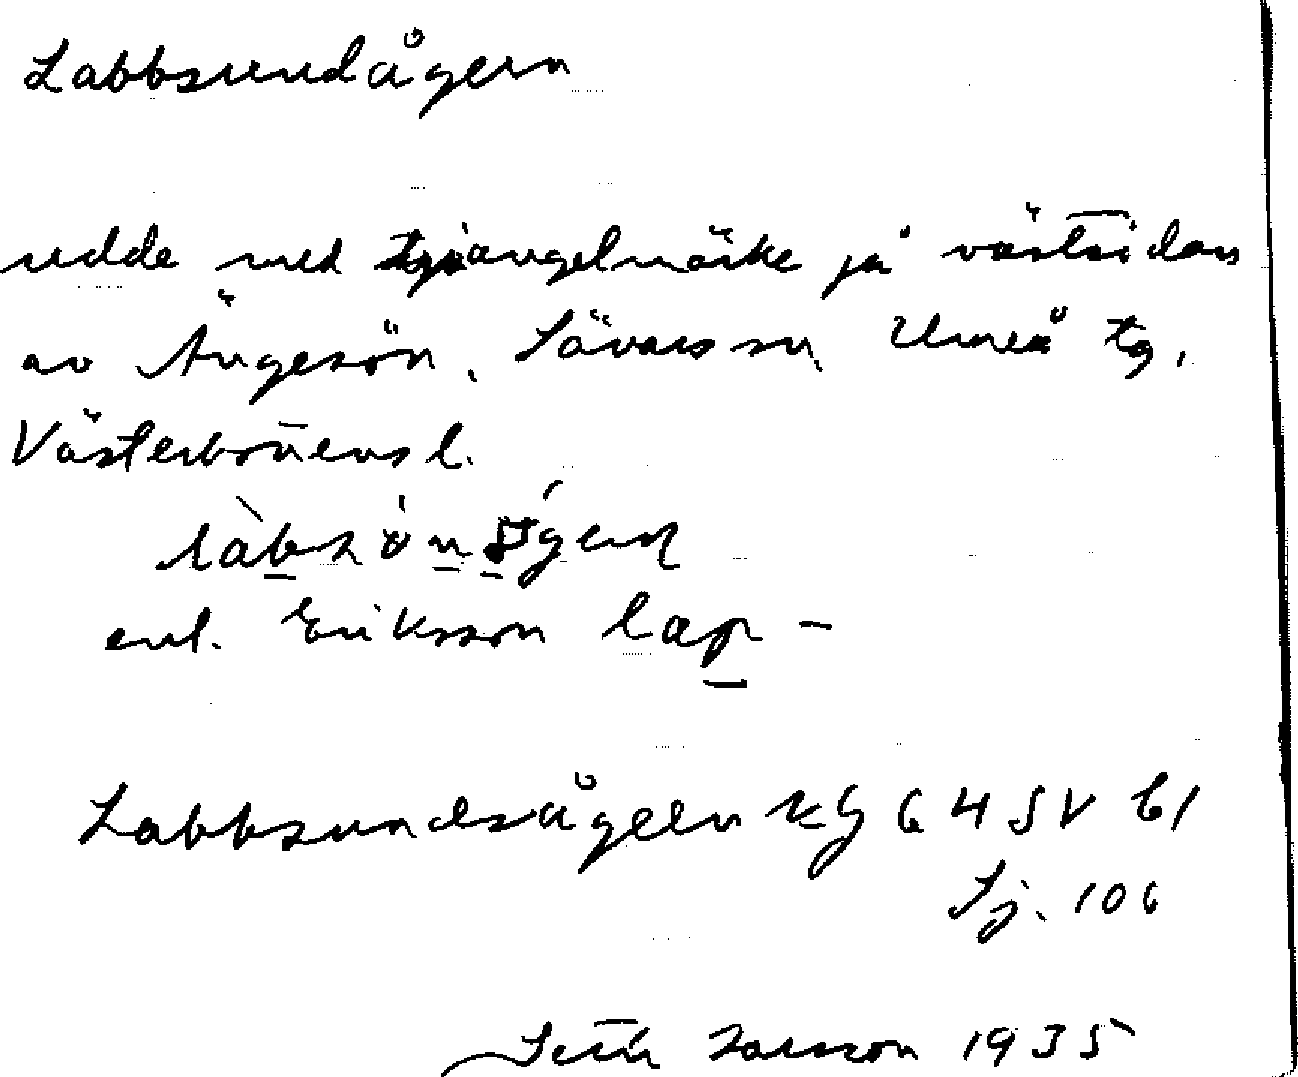 Labbsundågern
udde med triangelmärke på västsidan
av Ängesön, Sävars sn, Umeå tg,
Västerbottens l.
enl. Eriksson lap -
Labbsundsågeln KG 64 SV b1
Sj. 106
Seth Larsson 1935